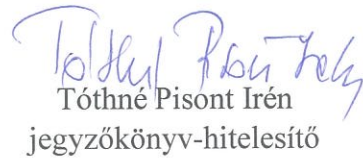 Tóthné Pisont Irén
jegyzőkönyv-hitelesítő